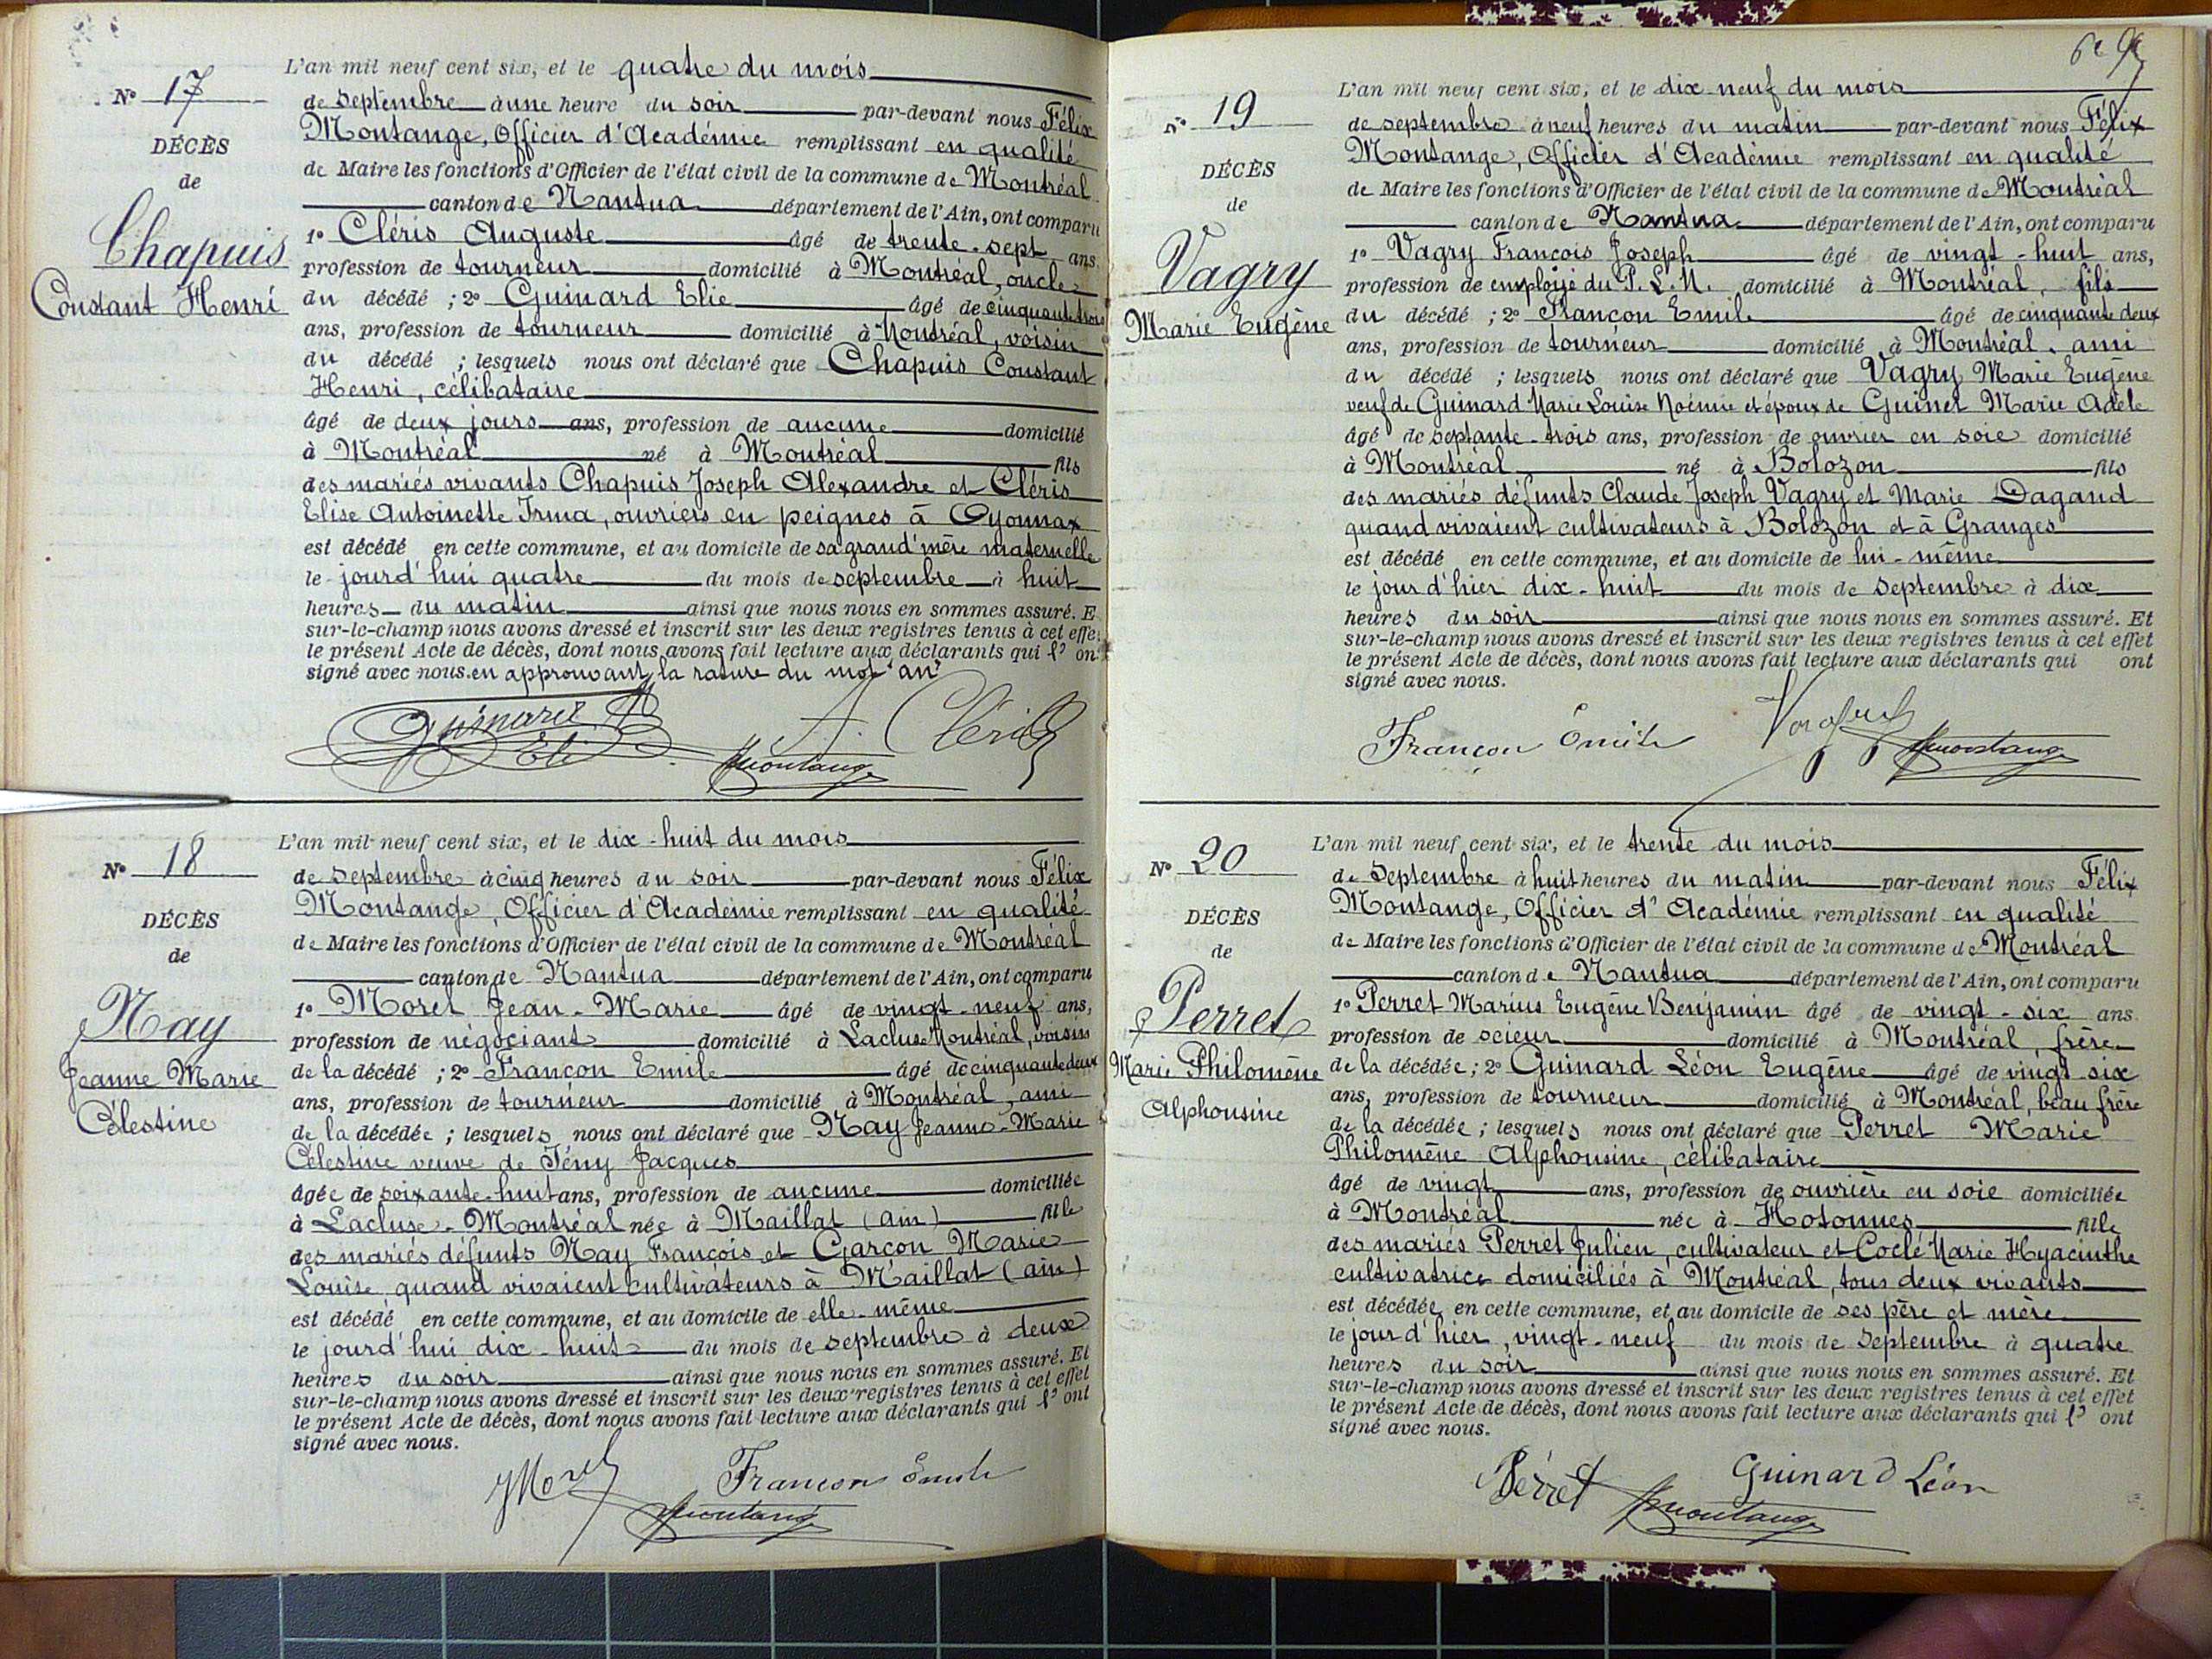 L'an mil neuf cent six, et le quatre du mois
N° 17
de septembre à une heure du soir par-devant nous Félix
Montange, Officier d'Académie remplissant en qualité
DÉCÈS
de Maire les fonctions d'Officier de l'état civil de la commune de Montréal
de
canton de Nantua département de l'Ain, ont comparu
Chapuis
1° Cléris Auguste âgé de trente-sept ans
profession de tourneur domicilié à Montréal, oncle
Constant Henri
du décédé ; 2° Guinard Elie âgé de cinquante trois
ans, profession de tourneur domicilié à Montréal, voisin
du décédé ; lesquels nous ont déclaré que Chapuis Constant
Henri, célibataire
âgé de deux jours ans, profession de aucune domicilié
à Montréal né à Montréal fils
des mariés vivants Chapuis Joseph Alexandre et Cléris
Elise Antoinette Irma, ouvriers en peignes à Oyonnax
est décédé en cette commune, et au domicile de sa grand'mère maternelle
le jourd'hui quatre du mois de septembre à huit
heures du matin ainsi que nous nous en sommes assuré. E
sur-le-champ nous avons dressé et inscrit sur les deux registres tenus à cet effe
le présent Acte de décès, dont nous avons fait lecture aux déclarants qui l' on
signé avec nous. en approuvant la rature du mot "an"
Guinard Elie
A. Cléris
Montange
L'an mil neuf cent six, et le dix-huit du mois
N° 18
de septembre à cinq heures du soir par-devant nous Félix
Montange, Officier d'Académie remplissant en qualité
DÉCÈS
de Maire les fonctions d'Officier de l'état civil de la commune de Montréal
de
canton de Nantua département de l'Ain, ont comparu
Nay
1° Morel Jean-Marie âgé de vingt-neuf ans,
profession de négociant domicilié à Lacluse Montréal, voisin
Jeanne Marie
de la décédé ; 2° Françon Emile âgé de cinquante deux
ans, profession de tourneur domicilié à Montréal, ami
Célestine
de la décédée ; lesquels nous ont déclaré que Nay Jeanne-Marie
Célestine veuve de Tény Jacques
âgée de soixante-huit ans, profession de aucune domiciliée
à Lacluse-Montréal née à Maillat (ain) fille
des mariés défunts Nay François et Garçon Marie
Louise quand vivaient cultivateurs à Maillat (ain)
est décédé en cette commune, et au domicile de elle-même
le jourd'hui dix-huit du mois de septembre à deux
heures du soir ainsi que nous nous en sommes assuré. Et
sur-le-champ nous avons dressé et inscrit sur les deux registres tenus à cet effet
le présent Acte de décès, dont nous avons fait lecture aux déclarants qui l' ont
signé avec nous.
JMorel
Françon Emile
Montange
L'an mil neuf cent six, et le dix-neuf du mois
N° 19
de septembre à neuf heures du matin par-devant nous Félix
Montange, Officier d'Académie remplissant en qualité
DÉCÈS
de Maire les fonctions d'Officier de l'état civil de la commune de Montréal
de
canton de Nantua département de l'Ain, ont comparu
Vagry
1° Vagry François Joseph âgé de vingt-huit ans,
profession de employé du P. L. M. domicilié à Montréal, fils
Marie Eugène
du décédé ; 2° Françon Emile âgé de cinquante deux
ans, profession de tourneur domicilié à Montréal, ami
du décédé ; lesquels nous ont déclaré que Vagry Marie Eugène
veuf de Guinard Marie Louise Noémie et époux de Guinet Marie Adèle
âgé de septante-trois ans, profession de ouvrier en soie domicilié
à Montréal né à Bolozon fils
des mariés défunts Claude Joseph Vagry et Marie Dagand
quand vivaient cultivateurs à Bolozon et à Granges
est décédé en cette commune, et au domicile de lui-même
le jour d'hier dix-huit du mois de septembre à dix
heures du soir ainsi que nous nous en sommes assuré. Et
sur-le-champ nous avons dressé et inscrit sur les deux registres tenus à cet effet
le présent Acte de décès, dont nous avons fait lecture aux déclarants qui ont
signé avec nous.
Françon Emile
Montange
L'an mil neuf cent six, et le trente du mois
N° 20
de septembre à huit heures du matin par-devant nous Félix
Montange, Officier d'Académie remplissant en qualité
DÉCÈS
de Maire les fonctions d'Officier de l'état civil de la commune de Montréal
de
canton de Nantua département de l'Ain, ont comparu
Perret
1° Perret Marius Eugène Benjamin âgé de vingt-six ans
profession de scieur domicilié à Montréal, frère
Marie Philomène
de la décédée ; 2° Guinard Léon Eugène âgé de vingt six
ans, profession de tourneur domicilié à Montréal, beau frère
Alphonsine
de la décédée ; lesquels nous ont déclaré que Perret Marie
Philomène Alphonsine, célibataire
âgé de vingt ans, profession de ouvrière en soie domiciliée
à Montréal née à Hotonnes fille
des mariés Perret Julien, cultivateur et Coclé Marie Hyacinthe
cultivatrice domiciliés à Montréal, tous deux vivants
est décédée en cette commune, et au domicile de ses père et mère
le jour d'hier, vingt-neuf du mois de septembre à quatre
heures du soir ainsi que nous nous en sommes assuré. Et
sur-le-champ nous avons dressé et inscrit sur les deux registres tenus à cet effet
le présent Acte de décès, dont nous avons fait lecture aux déclarants qui l' ont
signé avec nous.
Perret
Guinard Léon
Montange